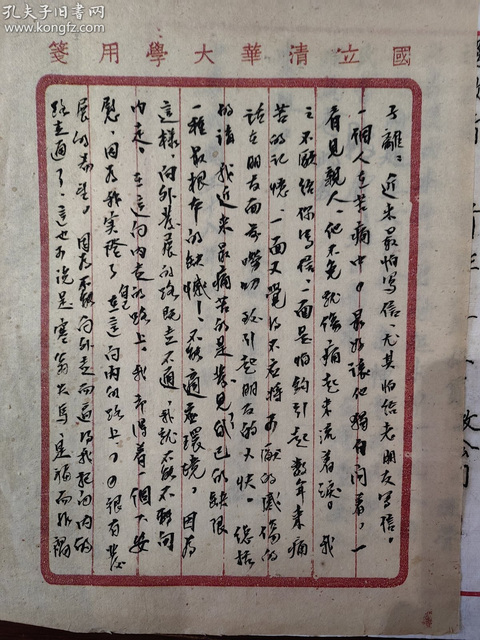 孔夫子旧書网
www.kongfz.com
國立清華大學用箋
子離。近來最怕寫信,尤其怕給老朋友寫信。
一個人在苦痛中,最好讓他獨自悶着,一
看見親人,他不免就傷痛起來流着淚。我
之不願給你寫信,一面是怕鈎引起數年來痛
苦的記憶,一面又覺得不应將可厭的感傷的
話在朋友面前嘮叨,致引起朋友的不快。總括
的講,我近來最痛苦的是發見了自己的缺限,
一種最根本的缺憾!不能適应環境。因為
這樣,向外發展的路既走不通,我就不能不轉向
内走。在這向内走的路上,我却得着一個大安
慰,因為我实證了自己在這向内的路上,很有發
展的希望。因為不能向外走而逼得我把向内的
路走通了,這也可說是塞翁失馬,是福而非禍